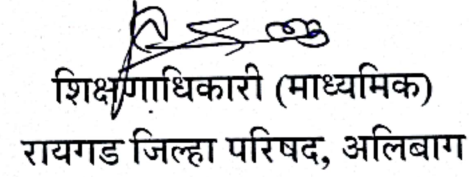 शिक्षणाधिकारी (माध्यमिक)
रायगड जिल्हा परिषद, अलिबाग